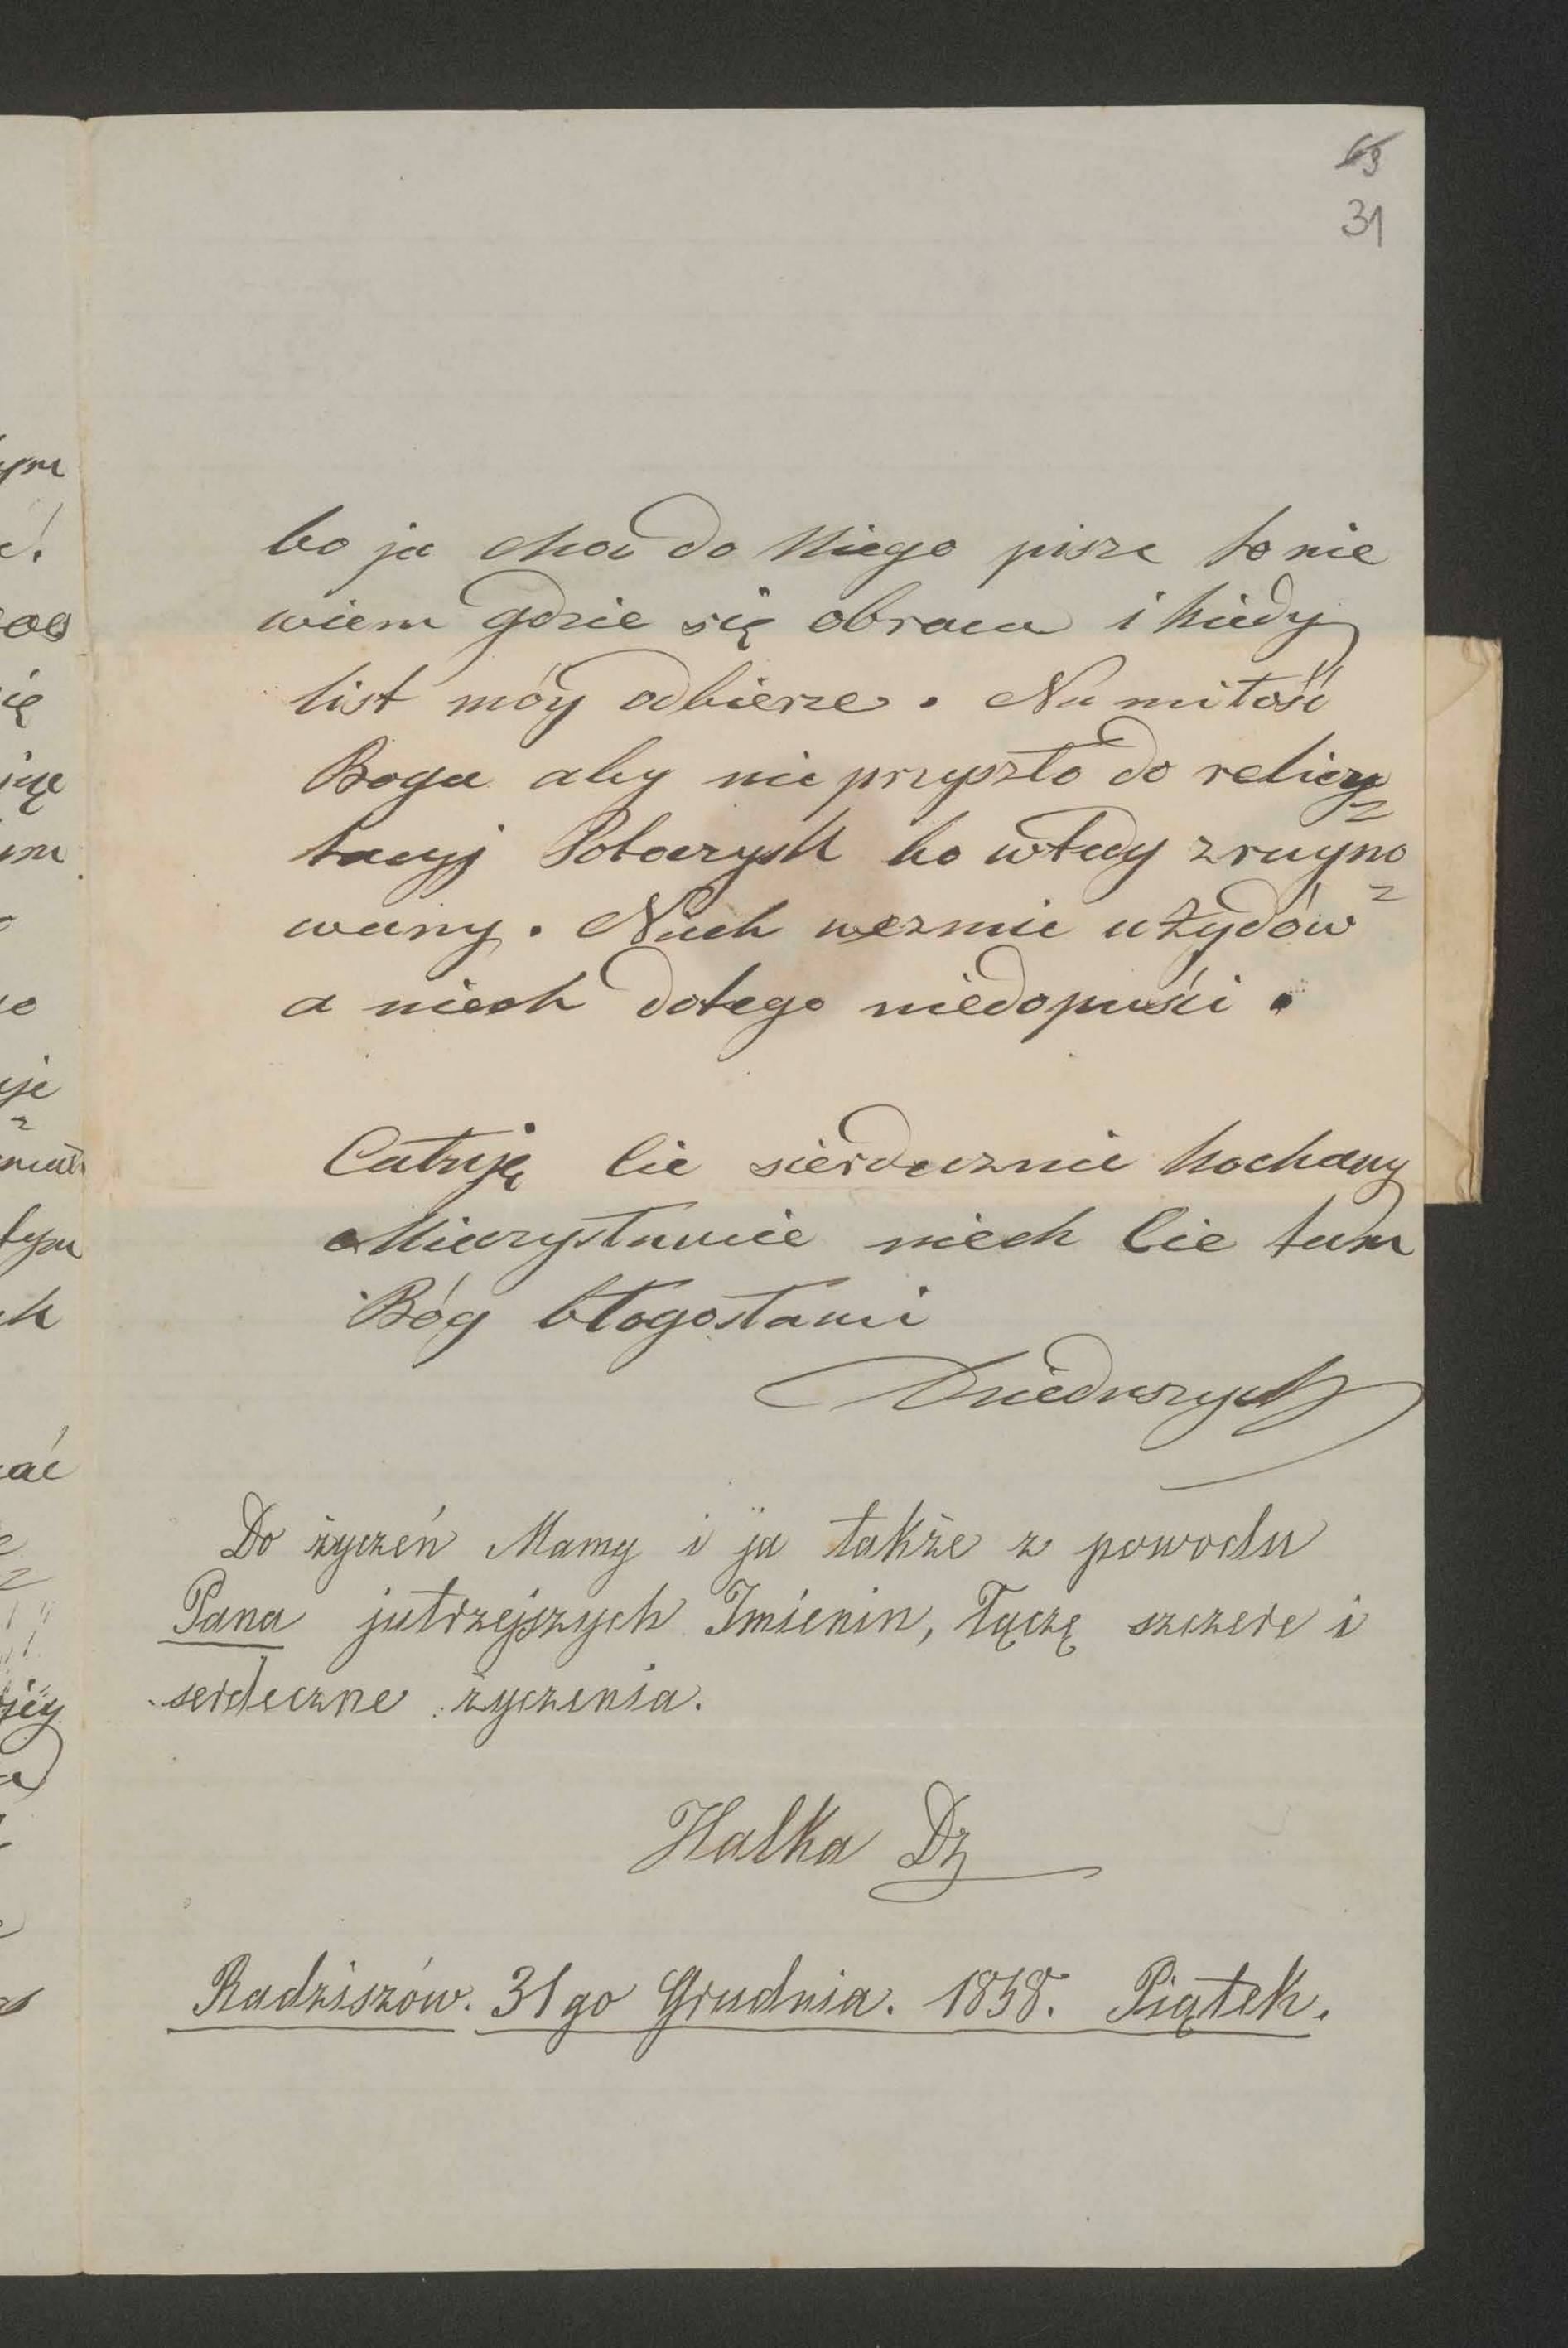 63
31
bo ja choć do Niego pisze to nie
wiem gdzie się obraca i kiedy
list móy odbierze. Na miłość
Boga aby nie przyszło do relicy=
tacyj Potoczysk bo wtedy zruyno=
wany. Niech wezmie u Żydów
a niech dotego niedopuści.
Całuję Cie sierdecznie kochany
Mieczysławie niech Cie tam
Bóg błogosławi
Dzieduszycka
Do życzeń Mamy i ja także z powodu
Pana jutrzejszych Imienin, łączę szczere i
serdeczne życzenia.
Halka Dz
Radziszów. 31go Grudnia. 1858. Piątek.